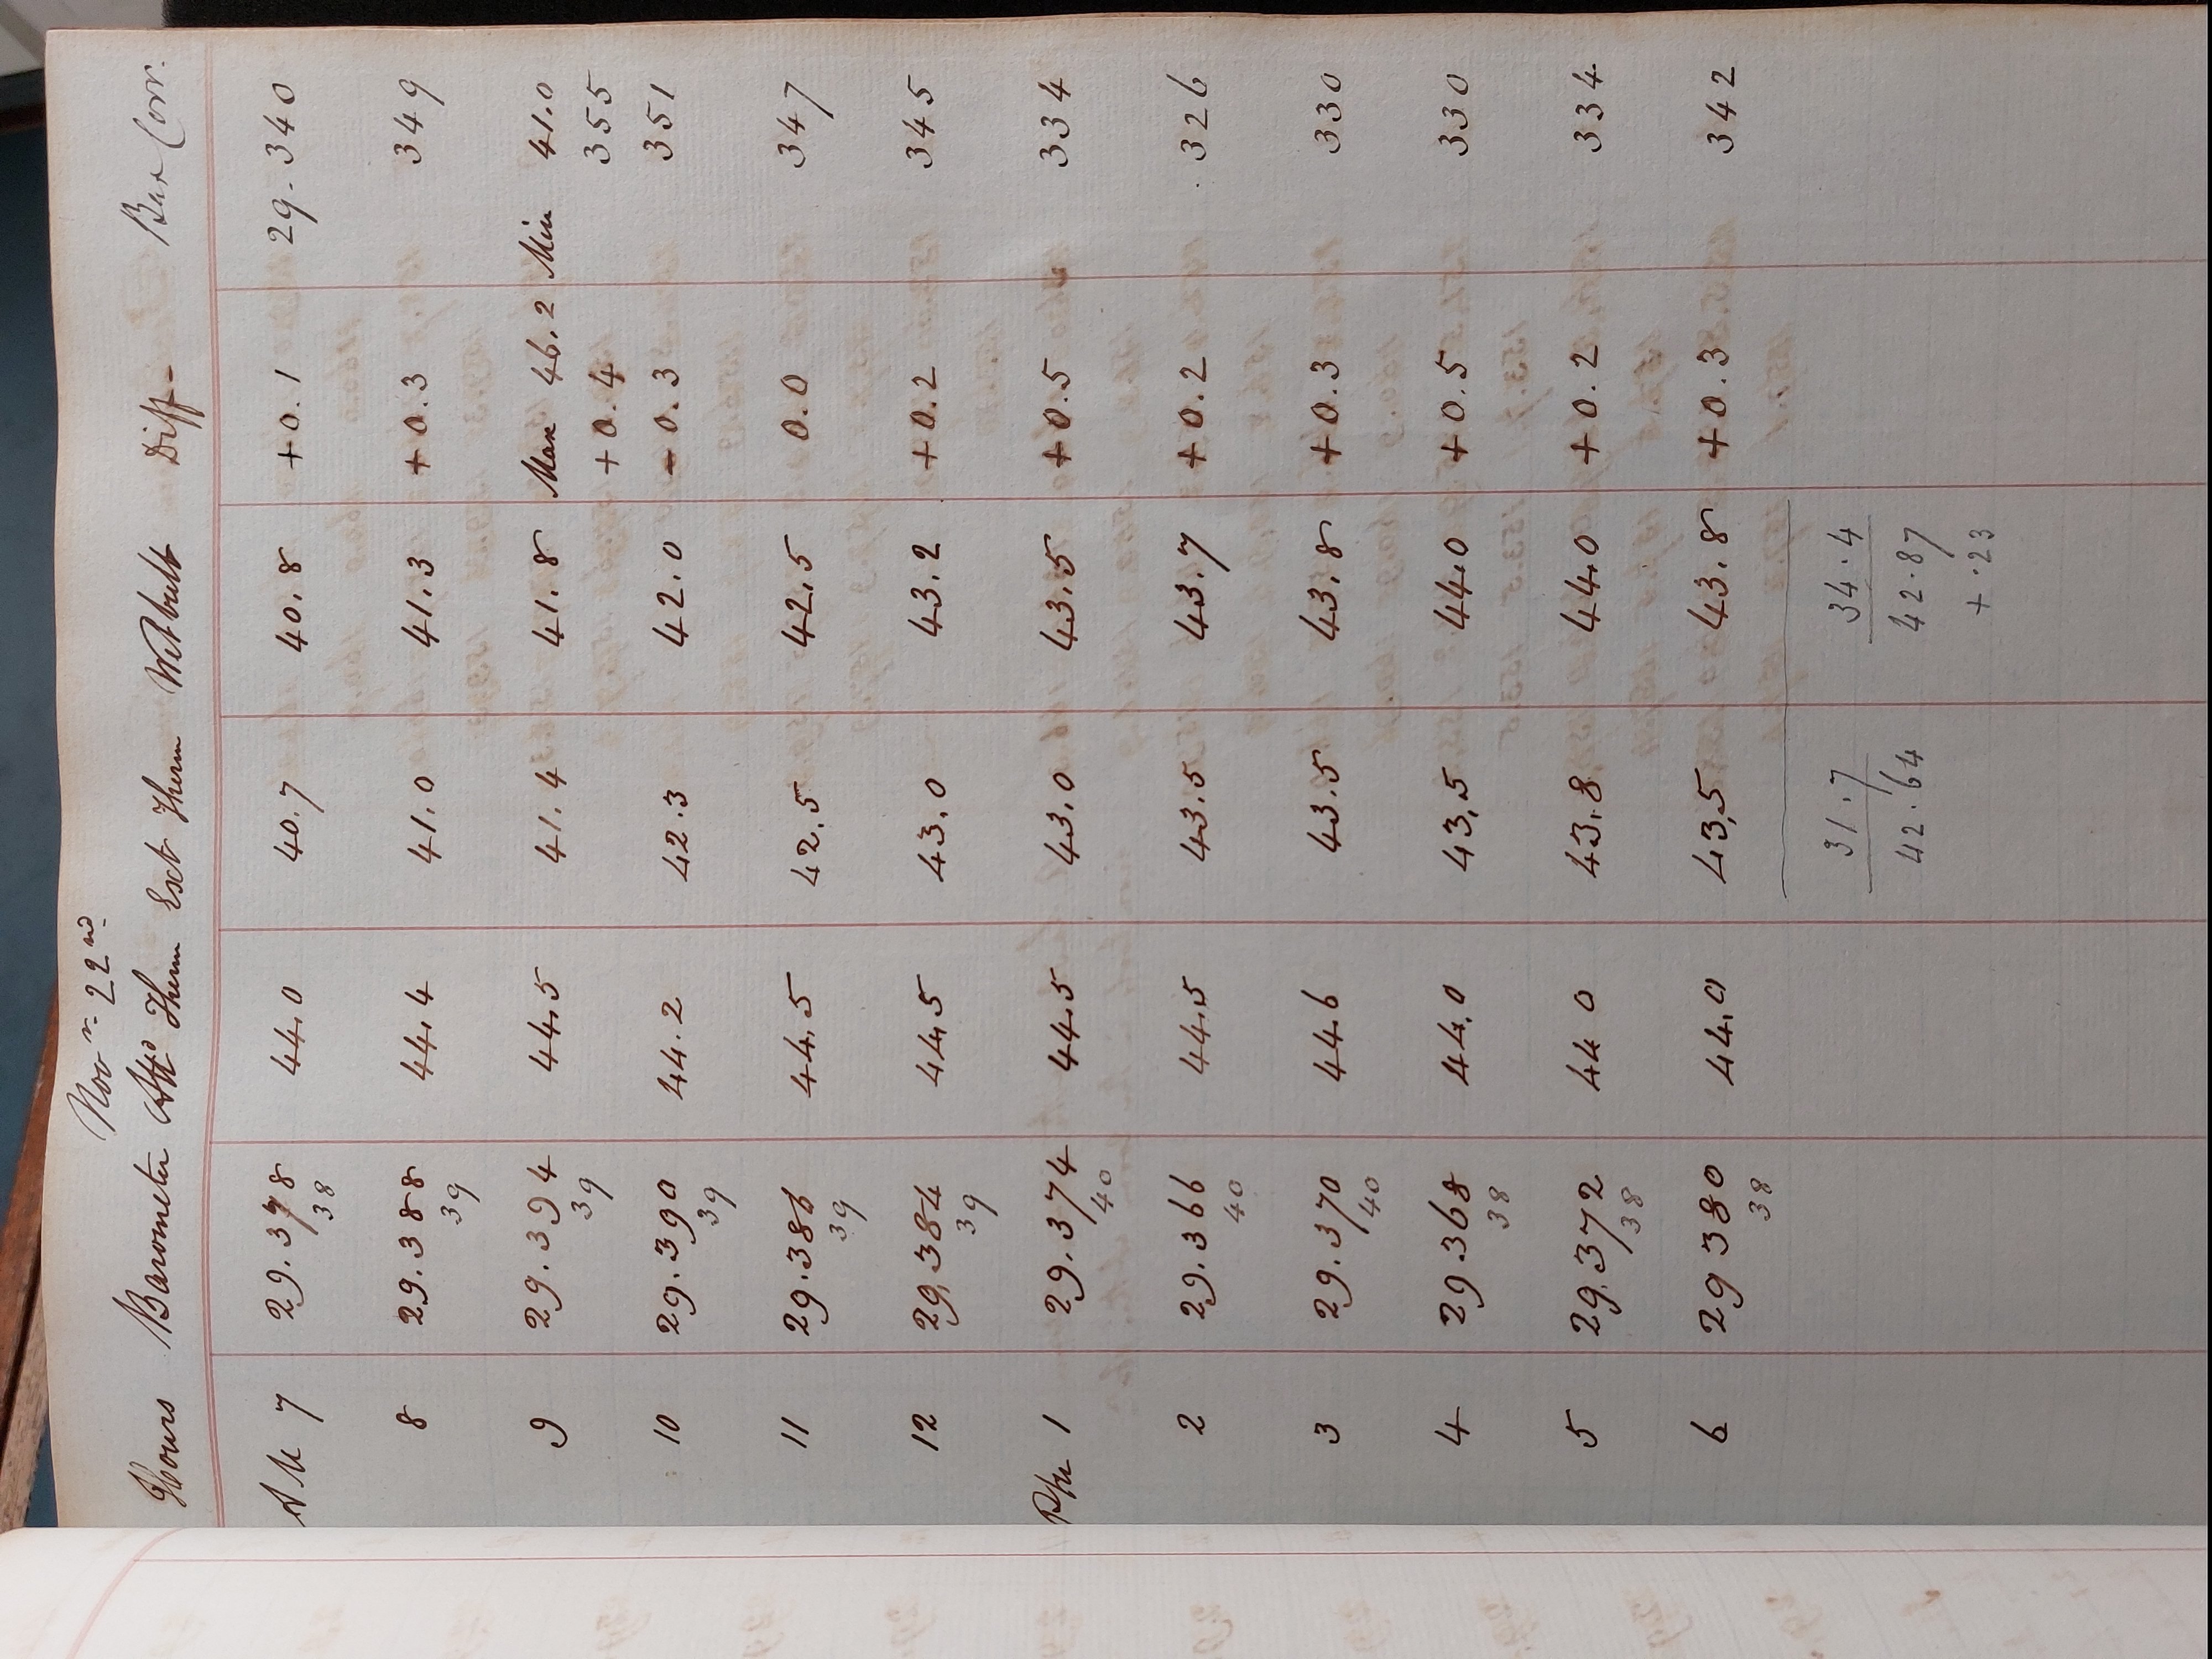 Novr. 22nd
Hours Barometer Attd Therm Ext Therm Wet bulb Diff- Bar Corr.
AM 7 29.378 44.0 40.7 40.8 +0.1 29.340
38
8 29.388 44.4 41.0 41.3 +0.3 349
39
9 29.394 44.5 41.4 41.8 Max 46.2 Min 41.0
39 +0.4 355
10 29.390 44.2 42.3 42.0 -0.3 351
39
11 29.386 44.5 42.5 42.5 0.0 347
39
12 29.384 44.5 43.0 43.2 +0.2 345
39
Pm 1 29.374 44.5 43.0 43.5 +0.5 334
40
2 29.366 44.5 43.5 43.7 +0.2 326
40
3 29.370 44.6 43.5 43.8 +0.3 330
40
4 29.368 44.0 43.5 44.0 +0.5 330
38
5 29.372 44 0 43.8 44.0 +0.2 334
38
6 29 380 44.0 43.5 43.8 +0.3 342
38
31.7 34.4
42.64 42.87
+ .23